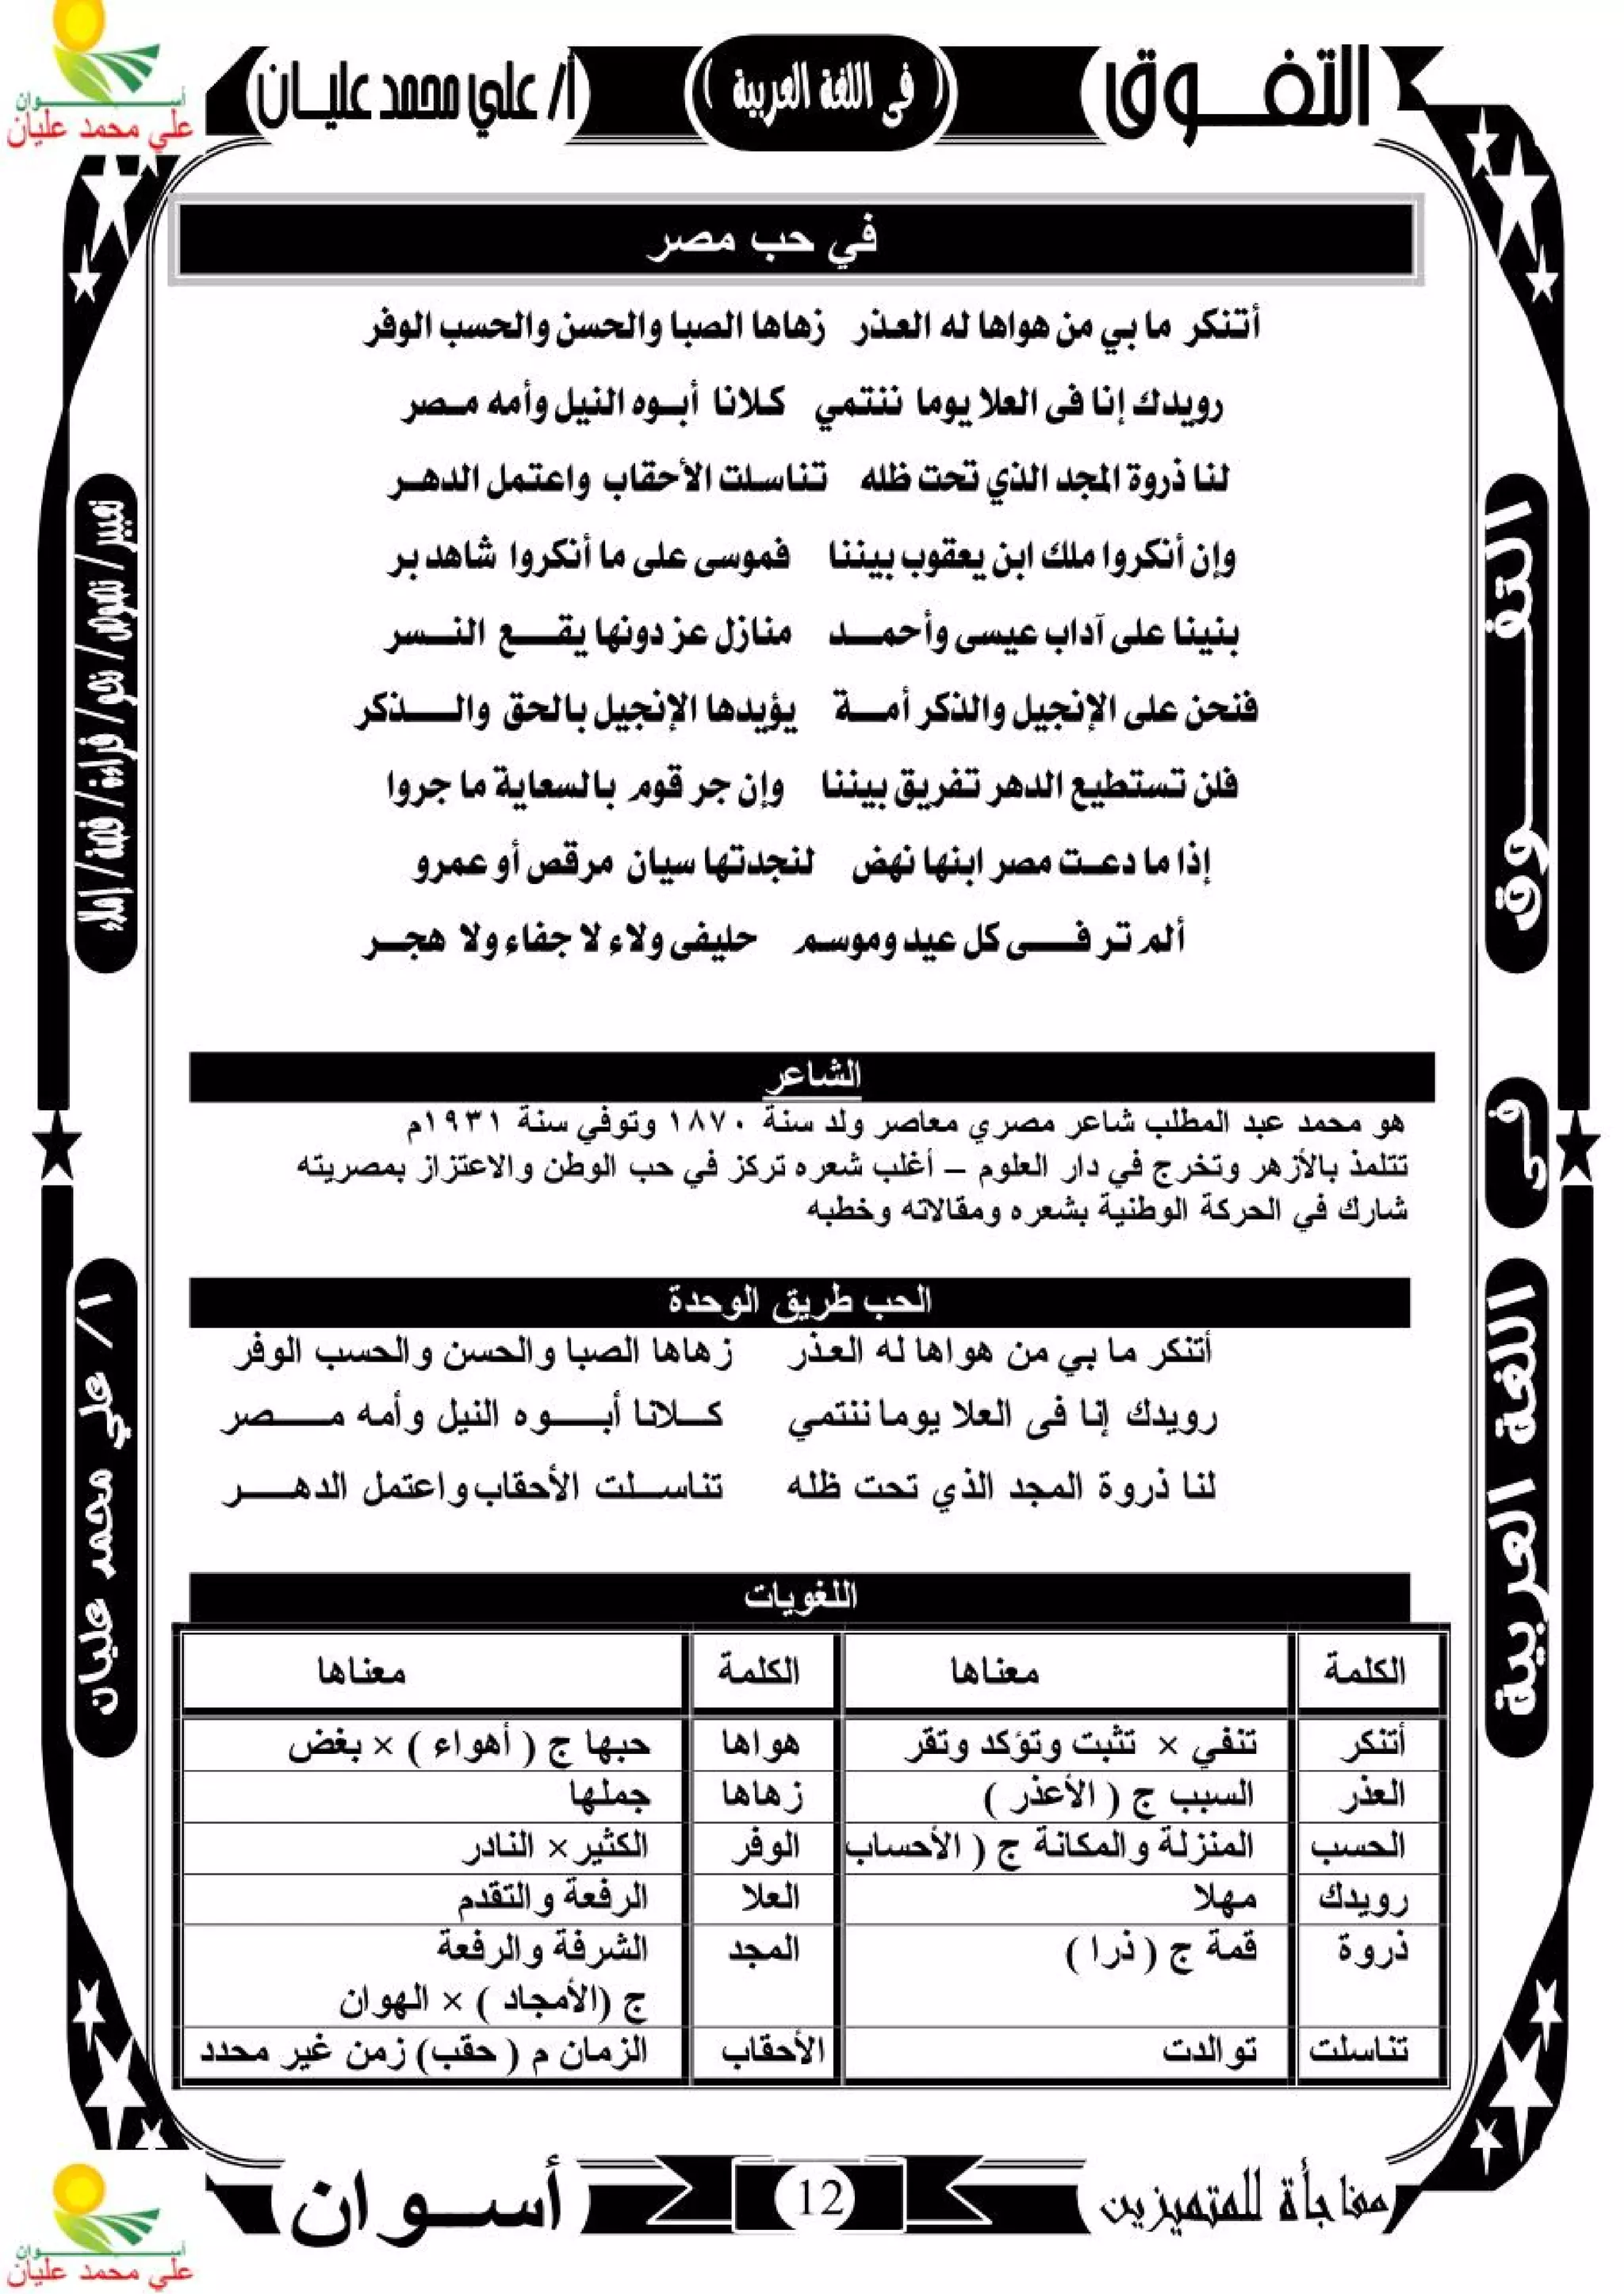 التفــوق
( فى اللغة العربية )
أ/ علي محمد عليــان
أســوان
علي محمد عليان
في حب مصر
أتنكر ما بي من هواها له العذر زهاها الصبا والحسن والحسب الوفر
رويدك إنا فى العلا يوما ننتمي كلانا أبــوه النيل وأمه مـصر
لنا ذروة المجد الذي تحت ظله تناسلت الأحقاب واعتمل الدهــر
وإن أنكروا ملك ابن يعقوب بيننا فموسى على ما أنكروا شاهد بر
بنينا على آداب عيسى وأحمــد منازل عز دونها يقــع النــسر
فنحن على الإنجيل والذكر أمــة يؤيدها الإنجيل بالحق والــذكر
فلن تستطيع الدهر تفريق بيننا وإن جر قوم بالسعاية ما جروا
إذا ما دعـت مصر ابنها نهض لنجدتها سيان مرقص أو عمرو
ألم تر فــى كل عيد وموسـم حليفى ولاء لا جفاء ولا هجــر
الشاعر
هو محمد عبد المطلب شاعر مصري معاصر ولد سنة ١٨٧٠ وتوفي سنة ١٩٣١م
تتلمذ بالأزهر وتخرج في دار العلوم – أغلب شعره تركز في حب الوطن والاعتزاز بمصريته
شارك في الحركة الوطنية بشعره ومقالاته وخطبه
الحب طريق الوحدة
أتنكر ما بي من هواها له العذر زهاها الصبا والحسن والحسب الوفر
رويدك إنا فى العلا يوما ننتمي كــلانا أبــــوه النيل وأمه مــــصر
لنا ذروة المجد الذي تحت ظله تناســلت الأحقاب واعتمل الدهــــر
اللغويات
الكلمة معناها الكلمة معناها
أتنكر تنفي × تثبت وتؤكد وتقر هواها حبها ج ( أهواء ) × بغض
العذر السبب ج ( الأعذر ) زهاها جملها
الحسب المنزلة والمكانة ج ( الأحساب الوفر الكثير× النادر
رويدك مهلا العلا الرفعة والتقدم
ذروة قمة ج ( ذرا ) المجد الشرفة والرفعة
ج (الأمجاد ) × الهوان
تناسلت توالدت الأحقاب الزمان م ( حقب) زمن غير محدد
التفــــوق
فى
اللغة العربية
تعبير/ نصوص/ نحو/ قراءة/ قصة/ إملاء
ا/ علي محمد عليان
مفاجأة للمتميزين
12
أســوان
أســوان
علي محمد عليان